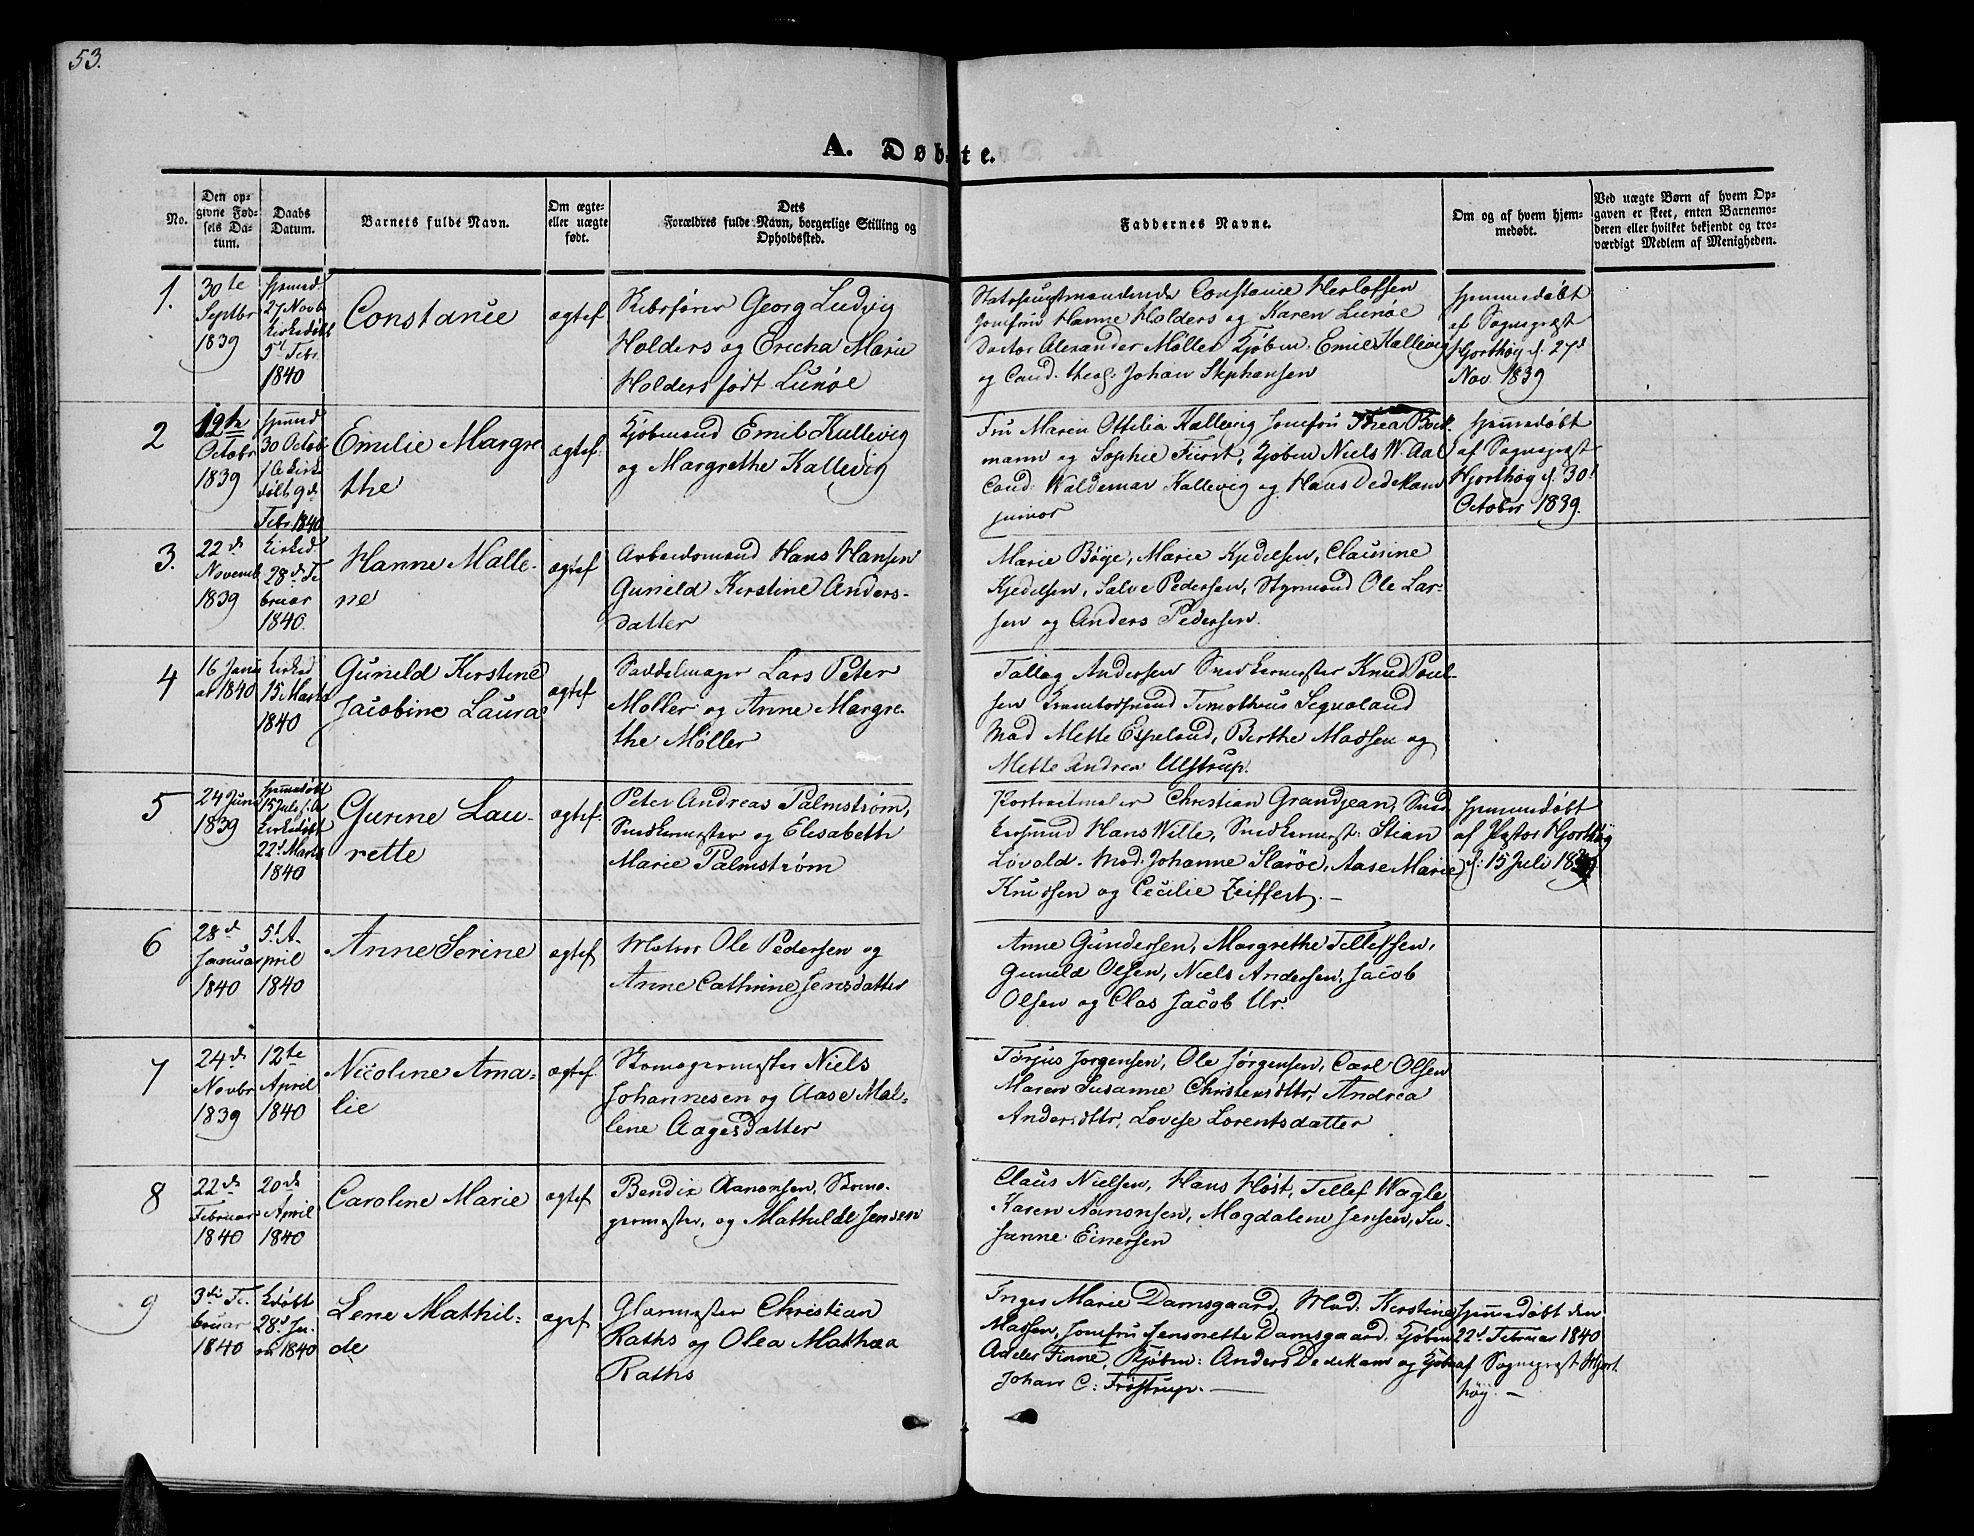 53.
A. Døbte.
No.
Den op-
givne Fød-
sels Da-
tum.
Daabs
Datum.
Barnets fulde Navn.
Om ægte-
eller uægte
født.
Dets
Forældres fulde Navn, borgerlige Stilling og
Opholdssted.
Faddernes Navne.
Om og af hvem hjem-
medøbt.
Ved uægte Børn af hvem Op-
gaven er skeet, enten Barnemo-
deren eller hvilket bekjendt og tro-
værdigt Medlem af Menigheden.
1.
30te
Septbr
1839
27 Novb
kirkedøbt
5d Febr.
1840
Constance
ægtef
Skibsfører Georg Ludvig
Holders og Ericha Marie
Holders født Lunøe
Constance Herlofsen
Jomfru Hanne Holders og Karen Lunøe
Doctor Alexander Møller Kjøbm: Emil Kallevig
og Cand. theol: Johan Stephansen
Hjemmedøbt
af Sognepræst
Hjorthøy d. 27d
Nov 1839
2
12te
Octobr
1839
30 Octob
døbt 9d
Febr 1840
Emilie Margre
the
ægtef.
Kjøbmand Emil Kallevig
og Margrethe Kallevig
Fru Maren Ottilia Kallevig Jomfru Thea Bock
mann og Sophie Fürst, Kjøbm Niels W. Aal
Cand. Waldemar Kallevig og Hans Dedekam
junior
Hjemmedøbt
af Sognepræst
Hjorthøy d. 30d
October 1839.
3.
22d
Novemb
1839
kirked
28d Fe
bruar
1840.
Hanne Malle-
ne
ægtef
Arbeidsmand Hans Hansen
Guneld Kirstine Anders-
datter
Marie Bøye, Marie Kjedelsen, Clausine
Kjedelsen, Salve Pedersen, Styrmand Ole Lar-
sen og Anders Pedersen.
4
16 Janu
ar 1840
kirked
15 Marts
1840
Guneld Kirstine
Jacobine Laura
ægtef
Saddelmager Lars Peter
Møller og Anne Margre-
the Møller
Tallag Andersen Snedkermester Knud Poul-
sen Timotheus Segnaland
Mad Mette Espeland, Berthe Madsen og
Mette Andrea Ulstrup.
5
24 Juni
1839
hjemmedøbt
15 Juli
kirkedøbt
22d Marts
1840
Gurine Lau-
rette
ægtef.
Peter Andreas Palmstrøm,
Snedkermester og Elisabeth
Marie Palmstrøm
Portraitmaler Christian Grandjean, Sned
kersvend Hans Wille, Snedkermest: Stian
Løvold. Mad. Johanne Slarøe, Aase Marie
Knudsen og Cecilie Zeiffert.
Hjemmedøbt
af Pastor Hjorthøy
d: 15 Juli 1839
6
28d
Januar
1840
5d A-
pril
1840
Anne Serine
ægtef
Matros Ole Pedersen og
Anne Cathrine Jensdatter
Anne Gundersen, Margrethe Tellefsen,
Guneld Olsen, Niels Andersen, Jacob
Olsen og Clas Jacob Ur.
7
24d
Novbr
1839
12te
April
1840
Nicoline Ama-
lie
ægtef.
Skomagermester Niels
Johannesen og Aase Mal-
lene Aagesdatter
Torjus Jorgensen, Ole Jørgensen, Carl Olsen
Maren Susanne Christensdttr, Andrea
Andersdttr, Lovise Lorentsdatter
8
22de
Februar
1840
20de
April
1840
Caroline Marie
ægtef
Bendix Aanonsen, Skoma-
germester, og Mathilde Jensen
Claus Nielsen, Hans Høst, Tellef Wagle
Karen Aanonsen, Magdalene Jensen, Su-
sanne Einersen
9
3die Fe-
bruar
1840
kdøbt
28d Ju-
ni 1840
Lene Mathil-
de
ægef.
Glarmester Christian
Raths og Olea Mathea
Raths
Inger Marie Damsgaard, Mad. Kirstine
Madsen, Jomfru Jensnette Damsgaard, Kjøbm
Adeler Finne, Kjøbm: Anders Dedekam og Kjøbm
Johan C: Frøstrup.
Hjemmedøbt den
22d Februar 1840
af Sognepræst Hjort
høy.